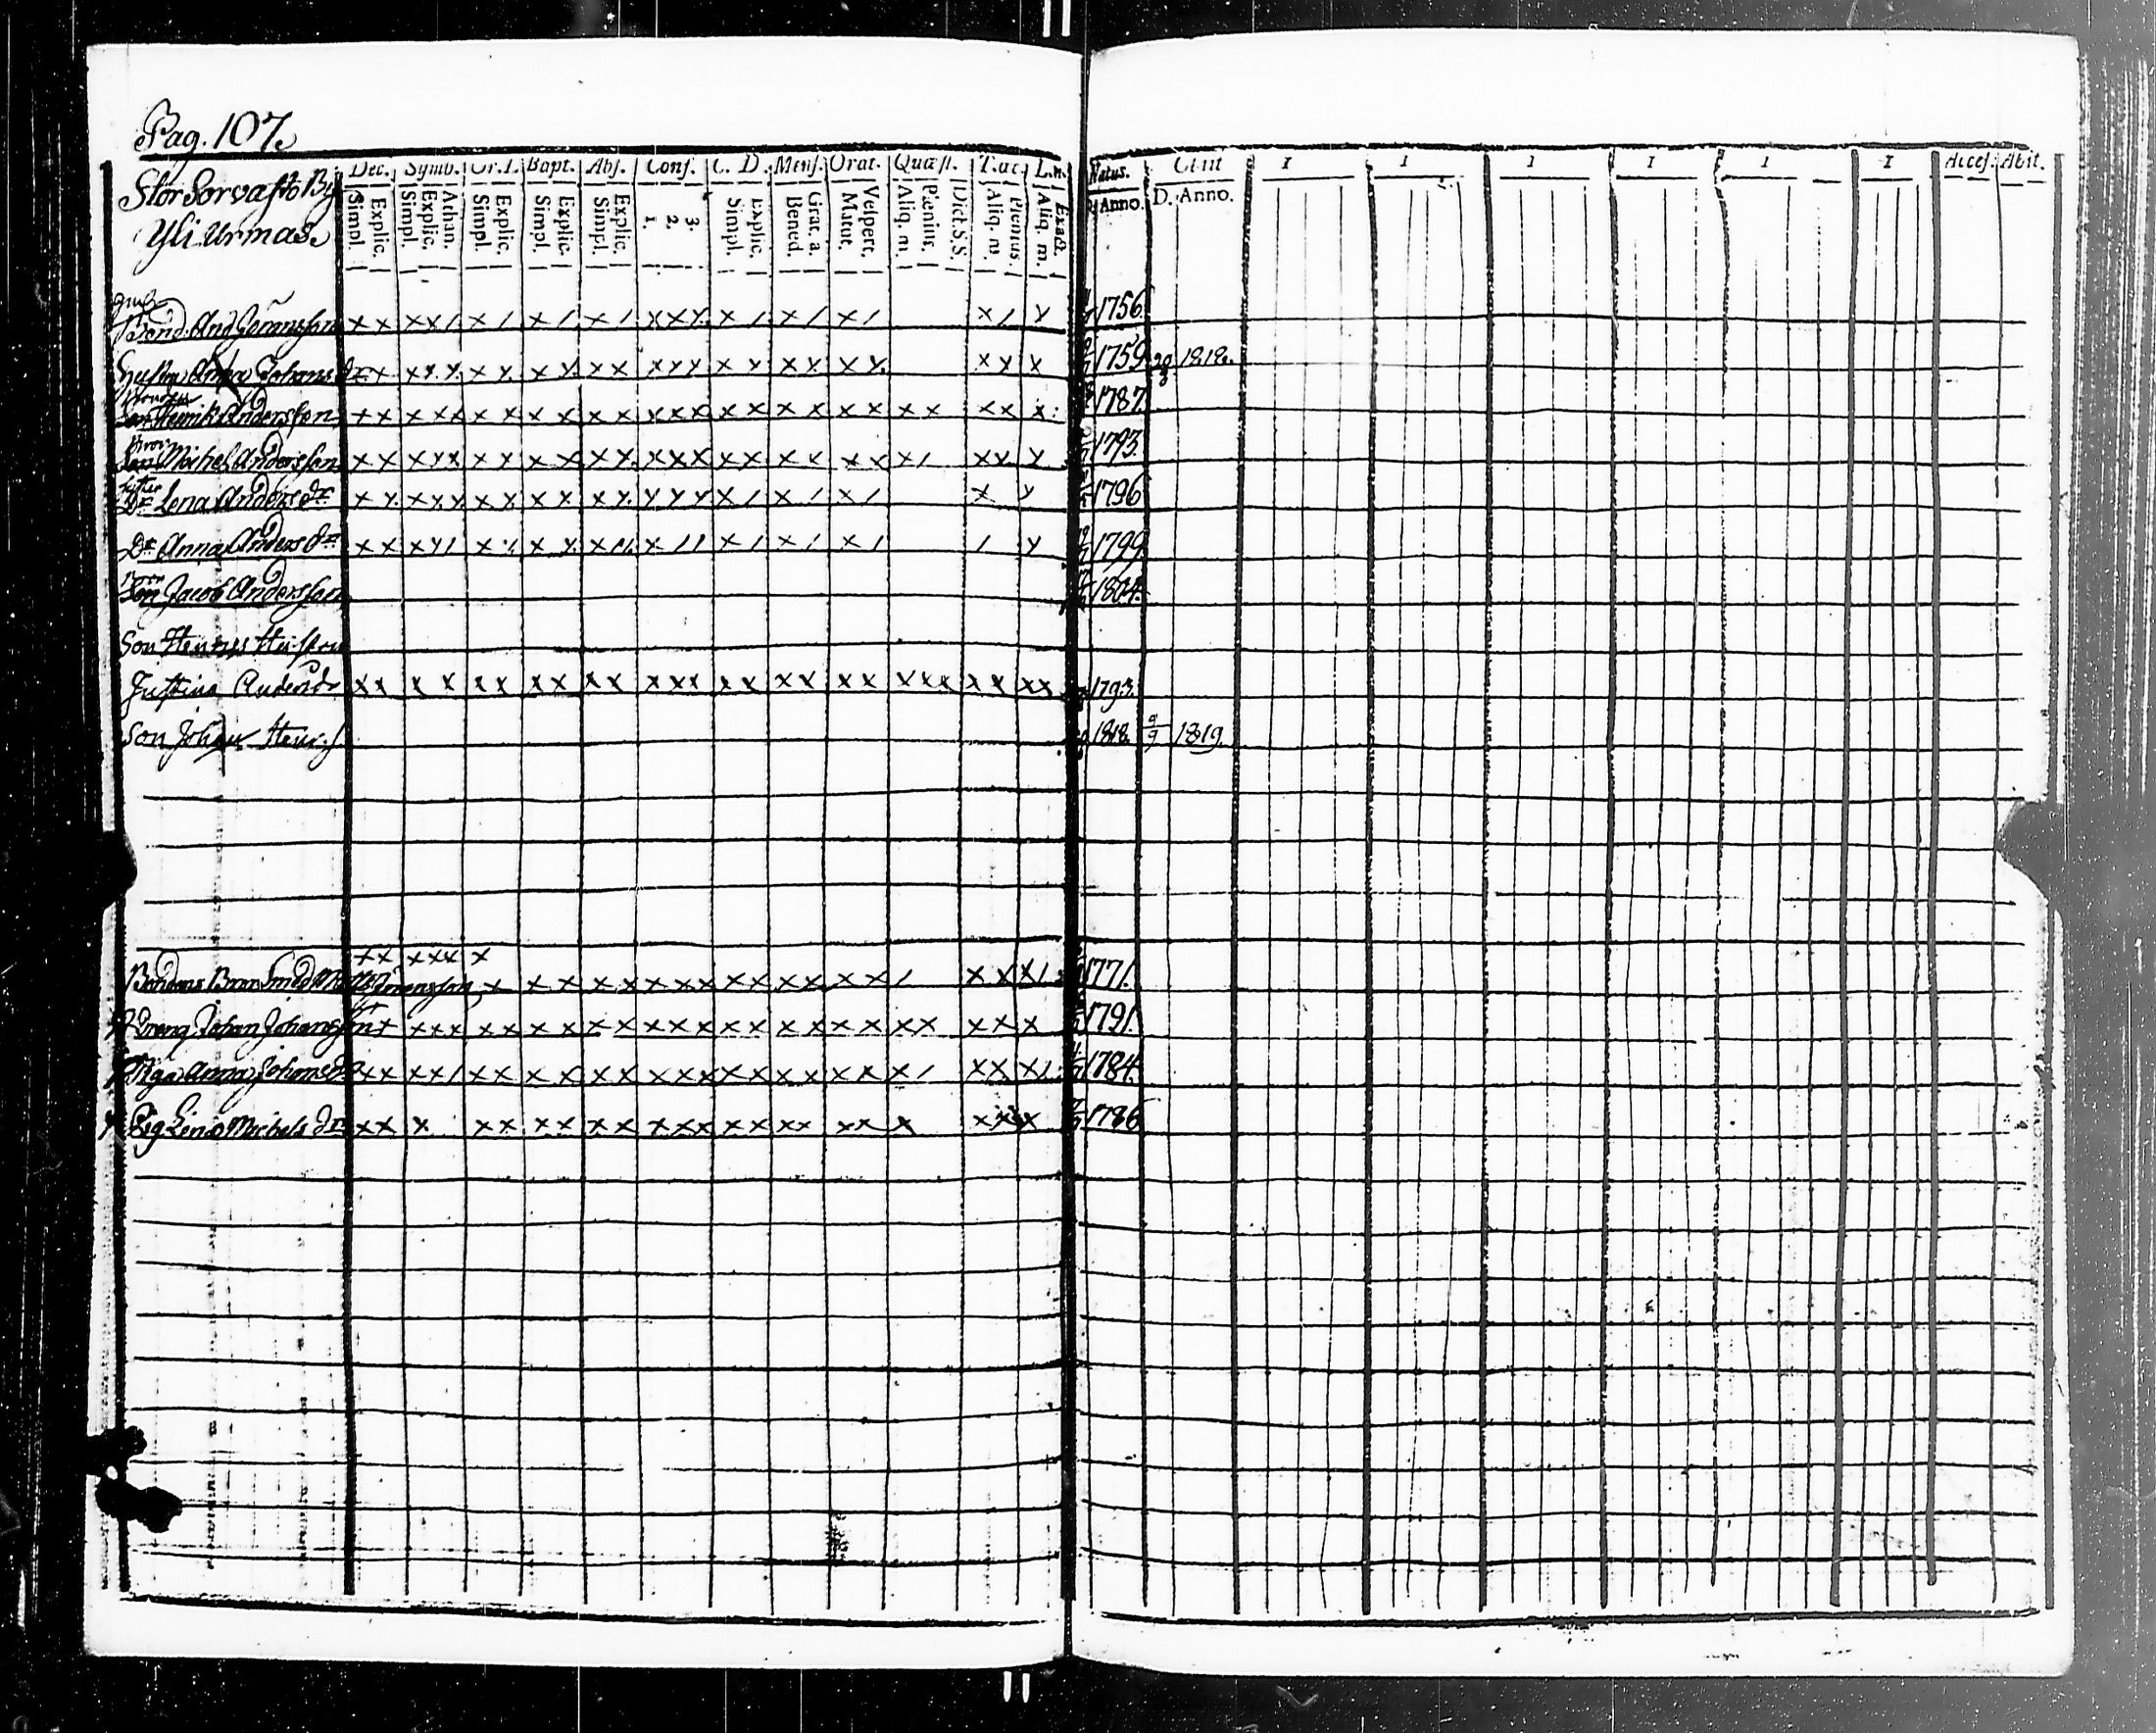 Pag. 107.
Stor Sorvasto By
Yli Urmas.
Dec. Symb. Or. D. Bapt. Abs. Conf. C. D. Mens. Orat. Quæst. T. ac. L. n. Natus. Obiit I I I I I I Acces. Abit.
Simpl. Explic. Simpl. Explic. Athan. Simpl. Explic. Simpl. Explic. Simpl. Explic. 1. 2. 3. Simpl. Explic. Bened. Grat. a. Matut. Vespert. Aliq. m. Plenius. Dict. S. S. Aliq. m. Plenius. Aliq. m. Exact. Anno. D. Anno.
Bond. And Göransson x x x x / x / x / x / x x x x / x / x / x / x 1756
Hustru Anna Johans dr x x x x x x x x x x x x x x x x x x x x x x x x 1759 1818.
Son Henrik Andersson x x x x x x x x x x x x x x x x x x x x x x x x x 1787
Bror
Son Michel Andersson x x x x x x x x x x x x x x x x x x x x x / x x x 1793
Dr Lena Anders dr x x x x x x x x x x x x x x x / x / x / x x 1796
Dr Anna Anders dr x x x x / x x x x / / x / x / x / / x 1799
Bror
Son Jacob Andersson 1804.
Son Hennes
Justina Andersdr x x x x x x x x x x x x x x x x x x x x x x x x x x 1793.
Son Johan Henr. s. 1818. 9/9 1819.
x x x x x x
Bondens Bror Smed Matts Göransson x x x x x x x x x x x x x x x / x x x / 1771.
Dreng Johan Johansson x x x x x x x x x x x x x x x x x x x x x x x x 1791.
Piga Anna Johans dr x x x x / x x x x x x x x x x x x x x x x / x x x / 1784.
Pig Lena Michels dr x x x x x x x x x x x x x x x x x x x x x x 1786